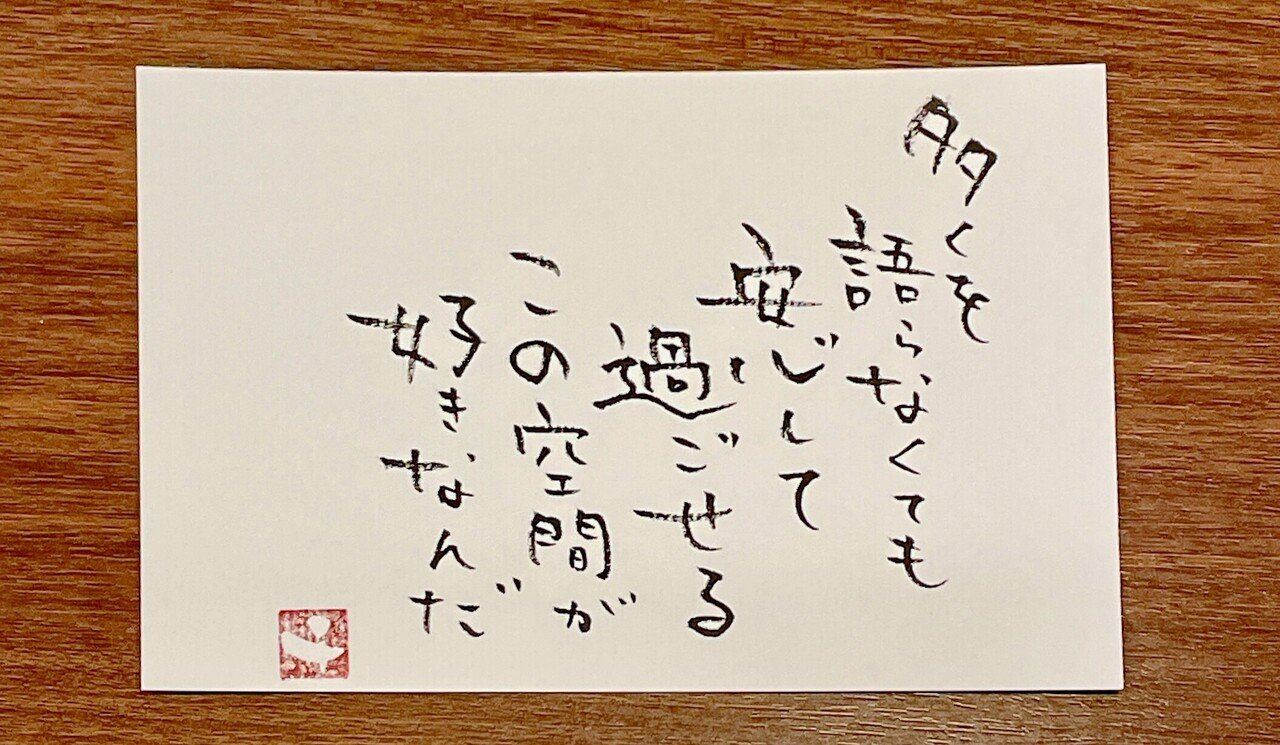 多くを
語らなくても
安心して
過ごせる
この空間が
好きなんだ